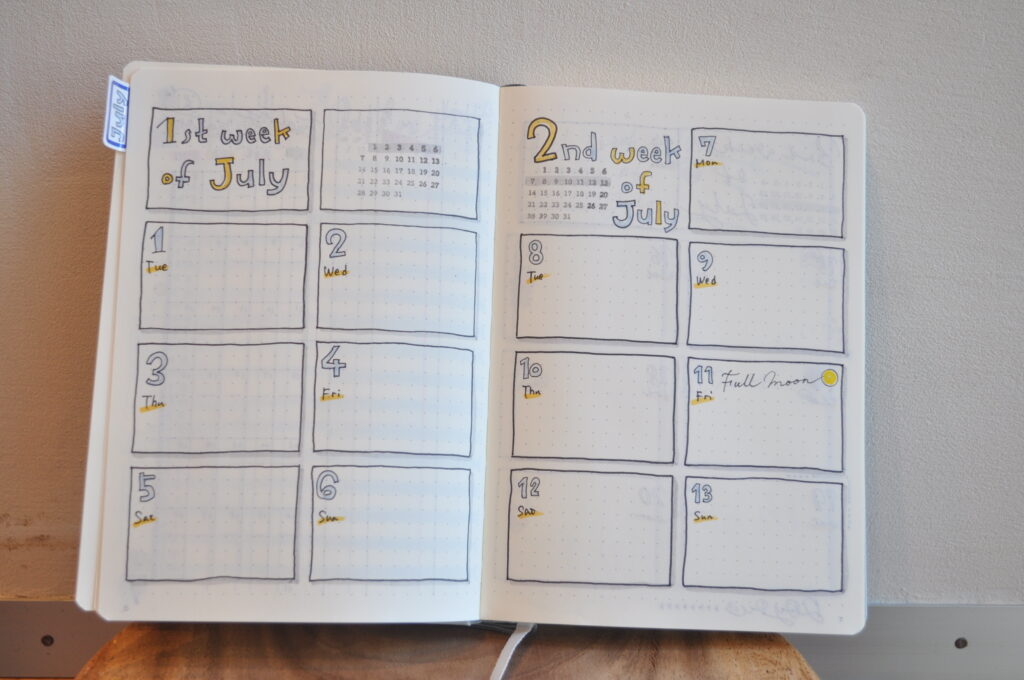 JULY
1st week
of July
1 2 3 4 5 6
7 8 9 10 11 12 13
14 15 16 17 18 19 20
21 22 23 24 25 26 27
28 29 30 31
1
Tue
2
Wed
3
Thu
4
Fri
5
Sat
6
Sun
2nd week
of
July
1 2 3 4 5 6
7 8 9 10 11 12 13
14 15 16 17 18 19 20
21 22 23 24 25 26 27
28 29 30 31
7
Mon
8
Tue
9
Wed
10
Thu
11 Full Moon
Fri
12
Sat
13
Sun
7